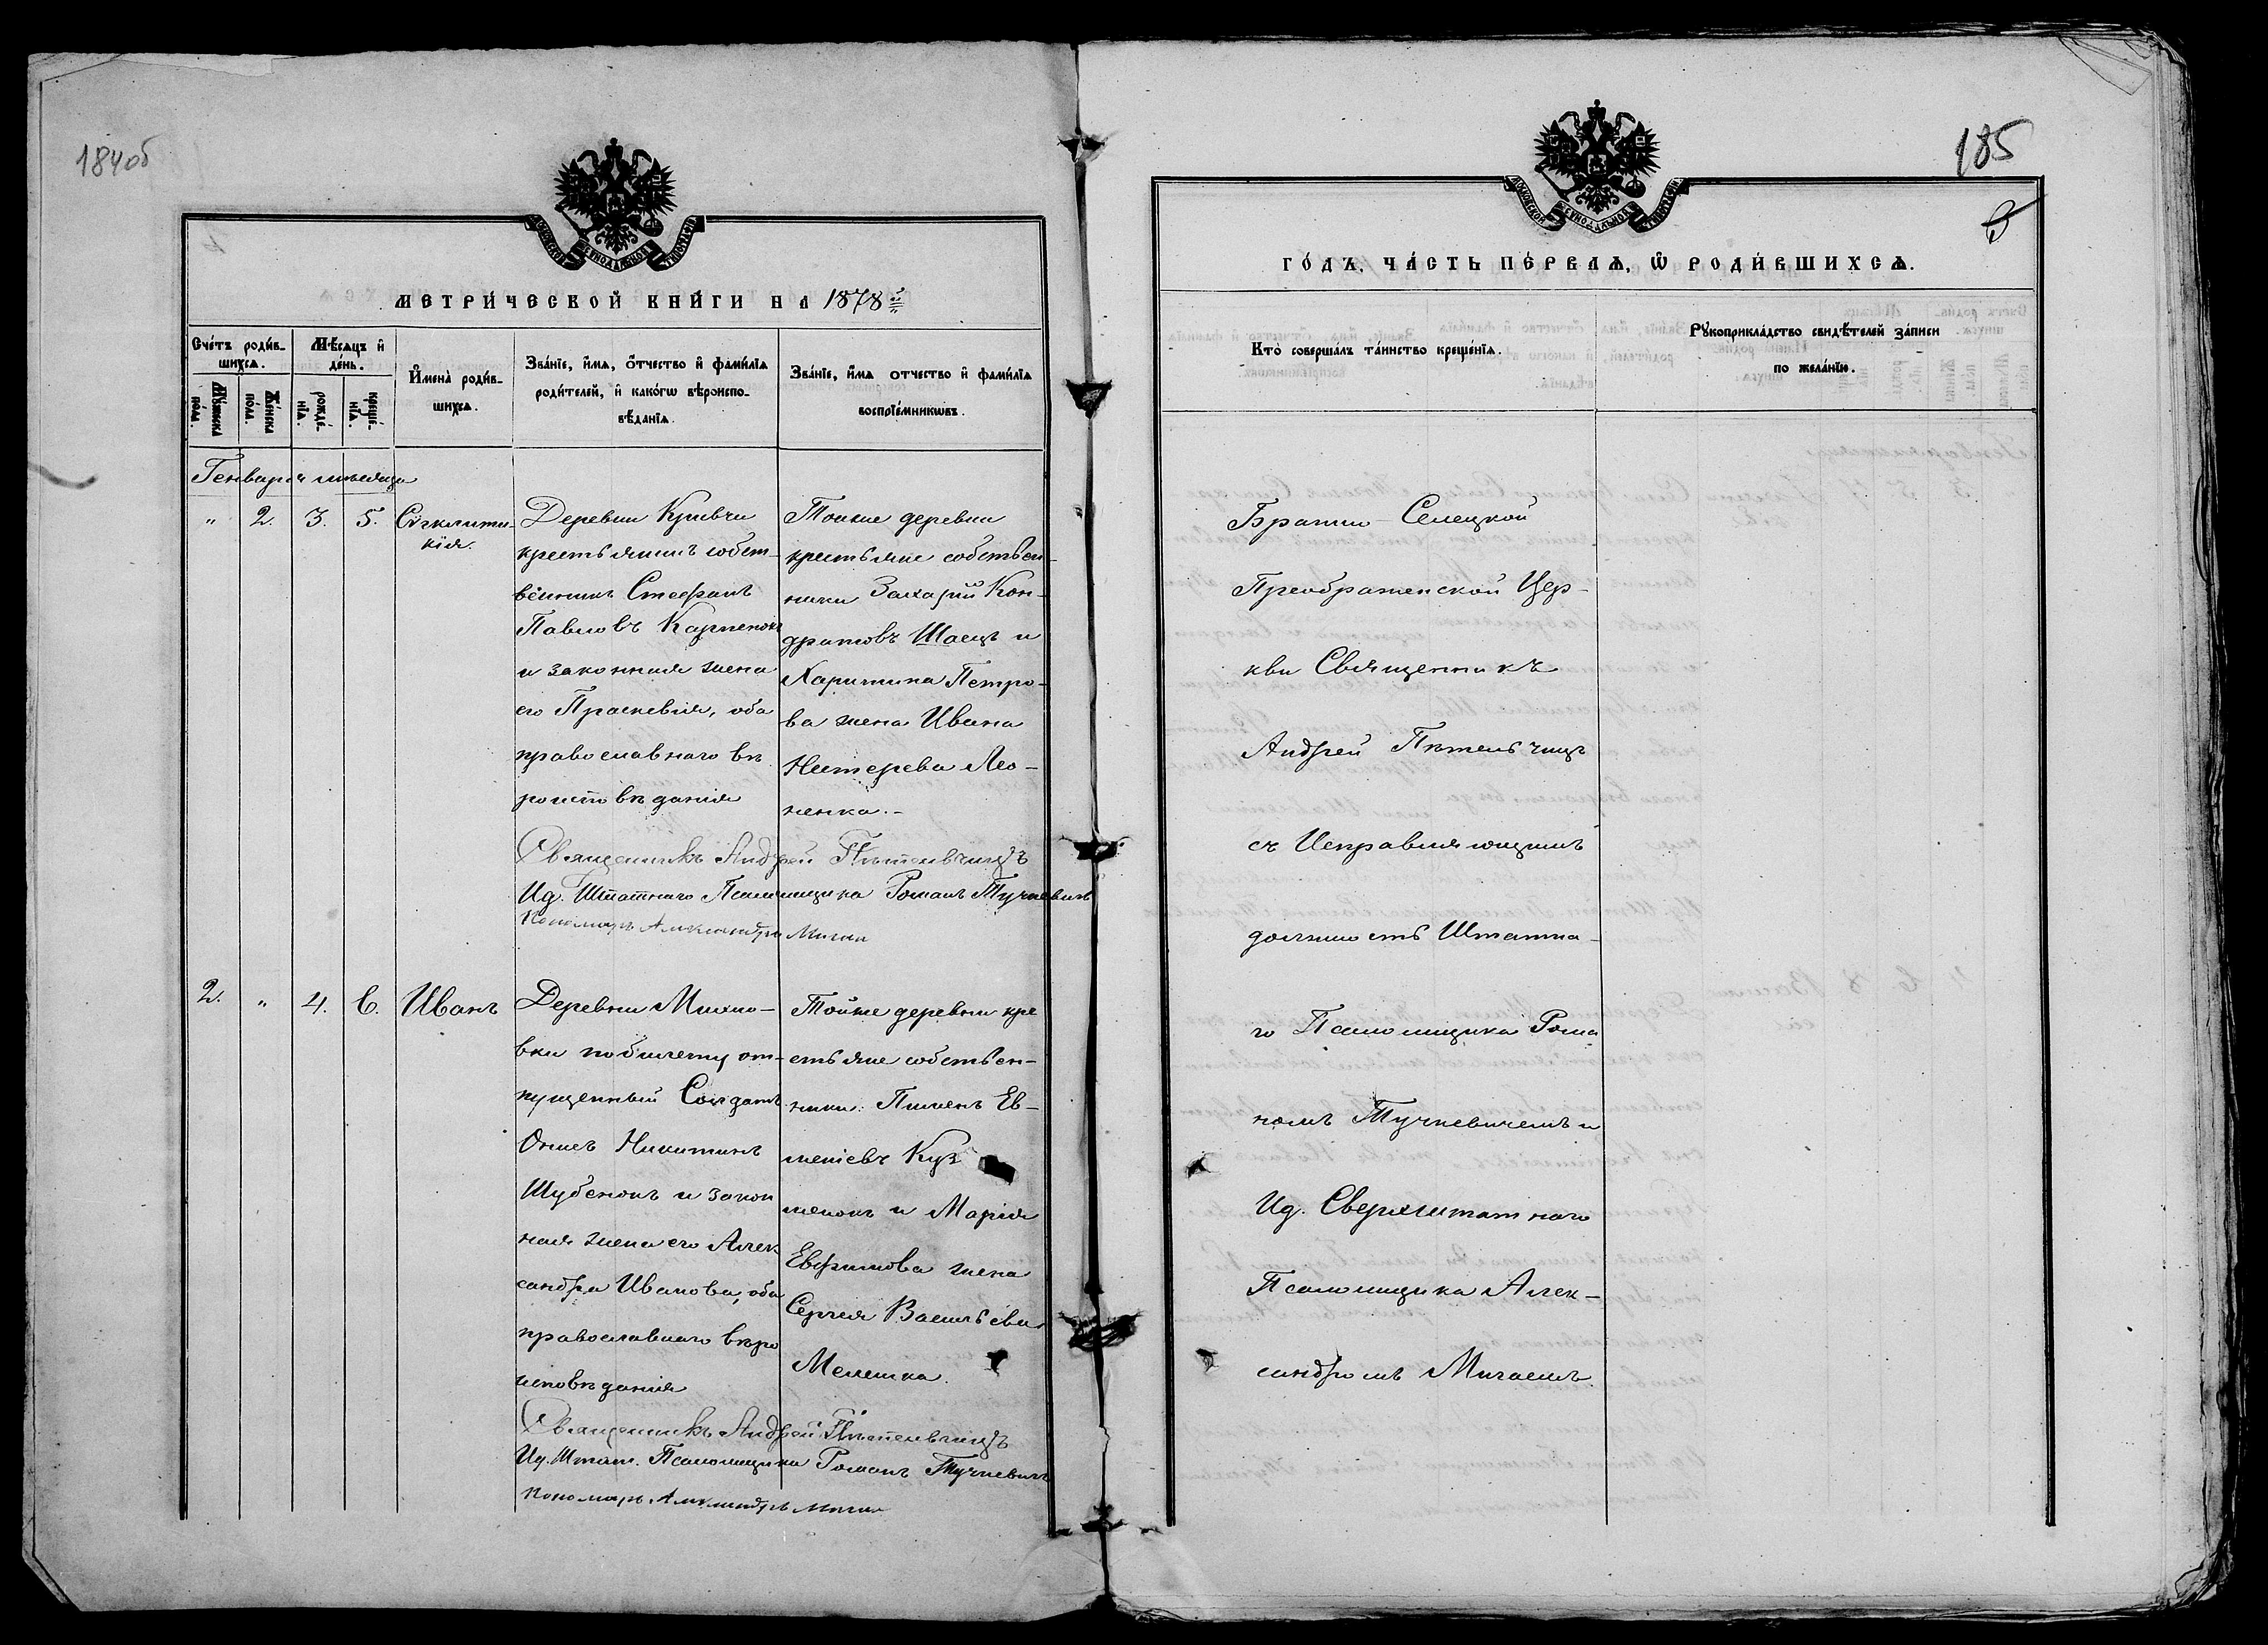 184об
МОСКОВСКОЙ СѴНОДАЛЬНОЙ ТИПОГРАФІИ
МЕТРИ́ЧЕСКОЙ КНИ́ГИ НА 1878й
Сче́тъ роди́в-
шихсѧ.
Мꙋ́жеска
по́ла.
Же́нска
по́ла.
Мѣ́сѧцъ и҆
де́нь.
рожде́-
нїѧ.
креще́-
нїѧ.
И҆мена̀ роди́в-
шихсѧ.
Зва́нїе, и҆́мѧ, ѻ҆́тчество и҆ фами́лїѧ
роди́телей, и҆ како́гѡ вѣроиспо-
вѣ́данїѧ.
Зва́нїе, и҆́мѧ отчество и҆ фами́лїѧ
воспрїе́мникѡвъ.
Генваря мѣсяца
" 2. 3. 5.
Сѵгклити-
кія.
Деревни Кривчи
крестьянинъ собст-
венникъ Стефанъ
Павловъ Карпенокъ
и законная жена
его Праскевія, оба
православнаго вѣ
роисповѣданія
Тойже деревни
крестьяне собствен-
ники Захарій Кон-
дратовъ Шаецъ и
Харитина Петро-
ва жена Ивана
Нестерева Лео-
ненка.-
Священникъ Андрей Пѣтельчицъ
Ид. Штатнаго Псаломщика Романъ Тучкевичъ
Пономарь Александръ Мигай
2. " 4. 6. Иванъ
Деревни Михно-
вки по билету от-
пущенный Солдатъ
Онисъ Никитинъ
Шубенокъ и закон
ная жена его Алек
сандра Иванова, оба
православнаго вѣро
исповѣданія
Тойже деревни кре
стьяне собствен-
ники: Пименъ Ев-
меніевъ Куз
менокъ и Марія
Евфимова жена
Сергія Васильева
Мелешка.
Священникъ Андрей Пѣтельчицъ
Ид. Штат. Псаломщика Романъ Тучкевичъ
Пономарь Александръ Мигай
185
МОСКОВСКОЙ СѴНОДАЛЬНОЙ ТИПОГРАФІИ
ГО́ДЪ, ЧА́СТЬ ПЕ́РВАѦ, Ѡ҆ РОДИ́ВШИХСѦ.
Кто̀ соверша́лъ та́инство креще́нїѧ.
Рꙋкоприкла́дство свидѣ́телей за́писи
по жела́нїю.
Братло-Селецкой
Преображенской Цер-
кви Священникъ
Андрей Пѣтельчицъ
съ Исправляющимъ
должность Штатна-
го Псаломщика Рома
номъ Тучкевичемъ и
Ид. Сверхштатнаго
Псаломщика Алек-
сандромъ Мигаемъ.